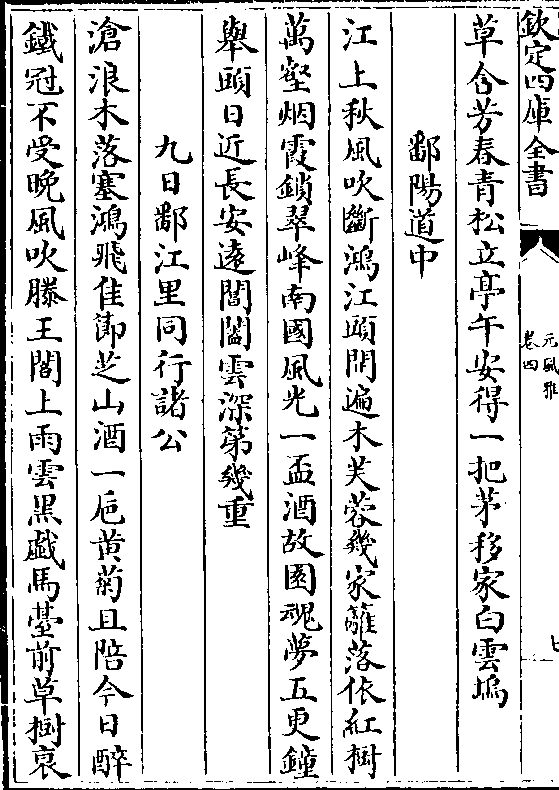 欽定四庫全書
元風雅
卷四
七
草含芳春青松立亭午安得一把茅移家白雲塢
鄱陽道中
江上秋風吹斷鴻江頭開遍木芙蓉幾家籬落依紅樹
萬壑烟霞鎖翠峰南國風光一盃酒故園魂夢五更鐘
舉頭日近長安遠閶闔雲深第幾重
九日鄱江里同行諸公
滄浪木落塞鴻飛佳節芝山酒一巵黄菊且陪今日醉
鐵冠不受晚風吹滕王閣上雨雲黒戯馬臺前草樹哀